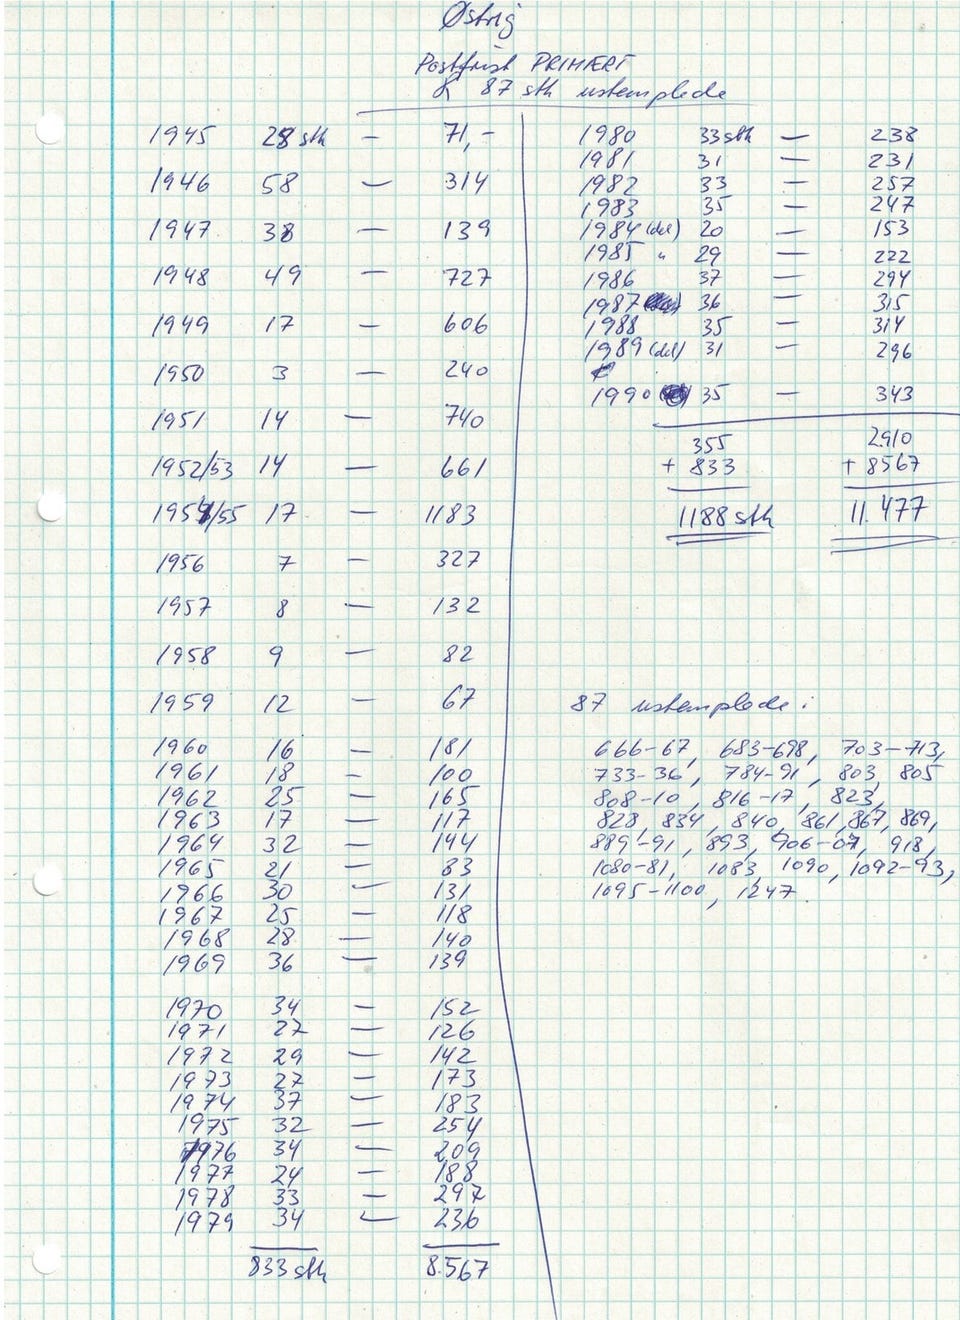 Østrig
Postfrisk PRIMÆRT
& 87 stk ustemplede
1945 28 stk – 71,-
1946 58 – 314
1947 38 – 139
1948 49 – 727
1949 17 – 606
1950 3 – 240
1951 14 – 740
1952/53 14 – 661
1954/55 17 – 1183
1956 7 – 327
1957 8 – 132
1958 9 – 82
1959 12 – 67
1960 16 – 181
1961 18 – 100
1962 25 – 165
1963 17 – 117
1964 32 – 144
1965 21 – 83
1966 30 – 131
1967 25 – 118
1968 28 – 140
1969 36 – 139
1970 34 – 152
1971 27 – 126
1972 29 – 142
1973 27 – 173
1974 37 – 183
1975 32 – 254
1976 34 – 209
1977 24 – 188
1978 33 – 297
1979 34 – 236
833 stk 8.567
1980 33 stk – 238
1981 31 – 231
1982 33 – 257
1983 35 – 247
1984 (del) 20 – 153
1985 " 29 – 222
1986 37 – 294
1987 36 – 315
1988 35 – 314
1989 (del) 31 – 296
1990 35 – 343
355 2910
+ 833 + 8567
1188 stk 11.477
87 ustemplede :
666-67, 683-698, 703-713,
733-36, 784-91, 803, 805
808-10, 816-17, 823,
828, 834, 840, 861, 867, 869,
889-91, 893, 906-07, 918,
1080-81, 1083, 1090, 1092-93,
1095-1100, 1247